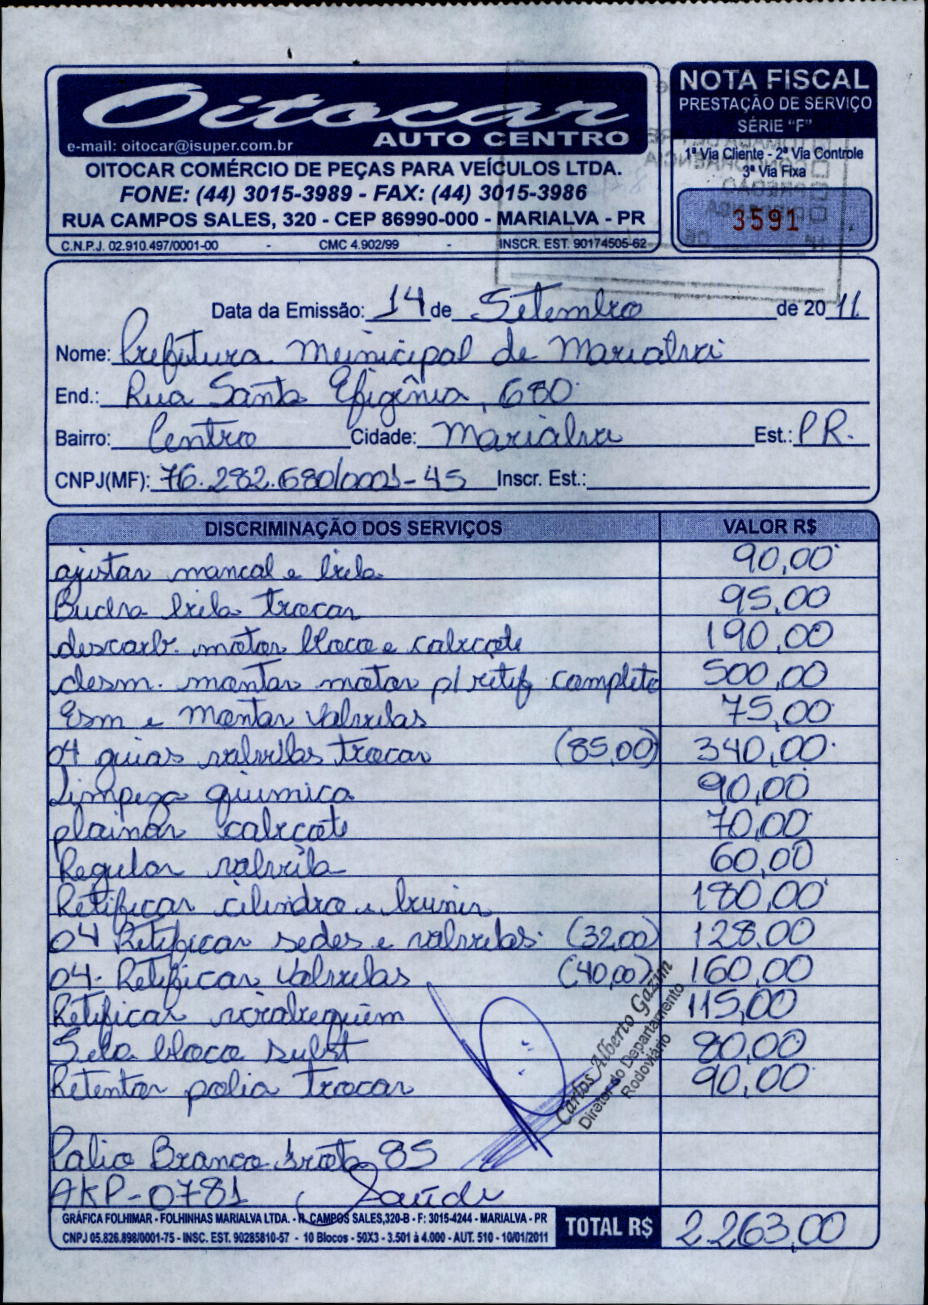 Oitocar
AUTO CENTRO
e-mail: oitocar@isuper.com.br
OITOCAR COMÉRCIO DE PEÇAS PARA VEÍCULOS LTDA.
FONE: (44) 3015-3989 - FAX: (44) 3015-3986
RUA CAMPOS SALES, 320 - CEP 86990-000 - MARIALVA - PR
C.N.P.J. 02.910.497/0001-00 - CMC 4.902/99 - INSCR. EST. 90174505-62
NOTA FISCAL
PRESTAÇÃO DE SERVIÇO
SÉRIE "F"
1ª Via Cliente - 2ª Via Controle
3ª Via Fixa
3591
Data da Emissão: 14 de Setembro de 2011
Nome: Prefeitura Municipal de Marialva
End.: Rua Santa Efigênia, 680
Bairro: Centro Cidade: Marialva Est.: PR.
CNPJ(MF): 76.282.680/0001-45 Inscr. Est.:
DISCRIMINAÇÃO DOS SERVIÇOS VALOR R$
ajustar mancal e biela 90,00
Bucha biela trocar 95,00
descarb. motor bloco e cabeçote 190,00
desm. montar motor p/ retif completo 500,00
Esm e Montar valvulas 75,00
04 guias valvulas trocar (85,00) 340,00
Limpeza quimica 90,00
plainar cabeçote 70,00
Regular valvula 60,00
Retificar cilindro e brunir 180,00
04 Retificar sedes e valvulas (32,00) 128,00
04- Retificar valvulas (40,00) 160,00
Retificar virabrequim 115,00
Selo bloco subst 80,00
Retentor polia trocar 90,00
Carlos Alberto Gazim
Diretor do Departamento
Rodoviário
Palio Branco frota 85
AKP-0781 Saúde
GRÁFICA FOLHIMAR - FOLHINHAS MARIALVA LTDA. - R. CAMPOS SALES,320-B - F: 3015-4244 - MARIALVA - PR
CNPJ 05.826.898/0001-75 - INSC. EST. 90285810-57 - 10 Blocos - 50X3 - 3.501 à 4.000 - AUT. 510 - 10/01/2011
TOTAL R$ 2.263,00